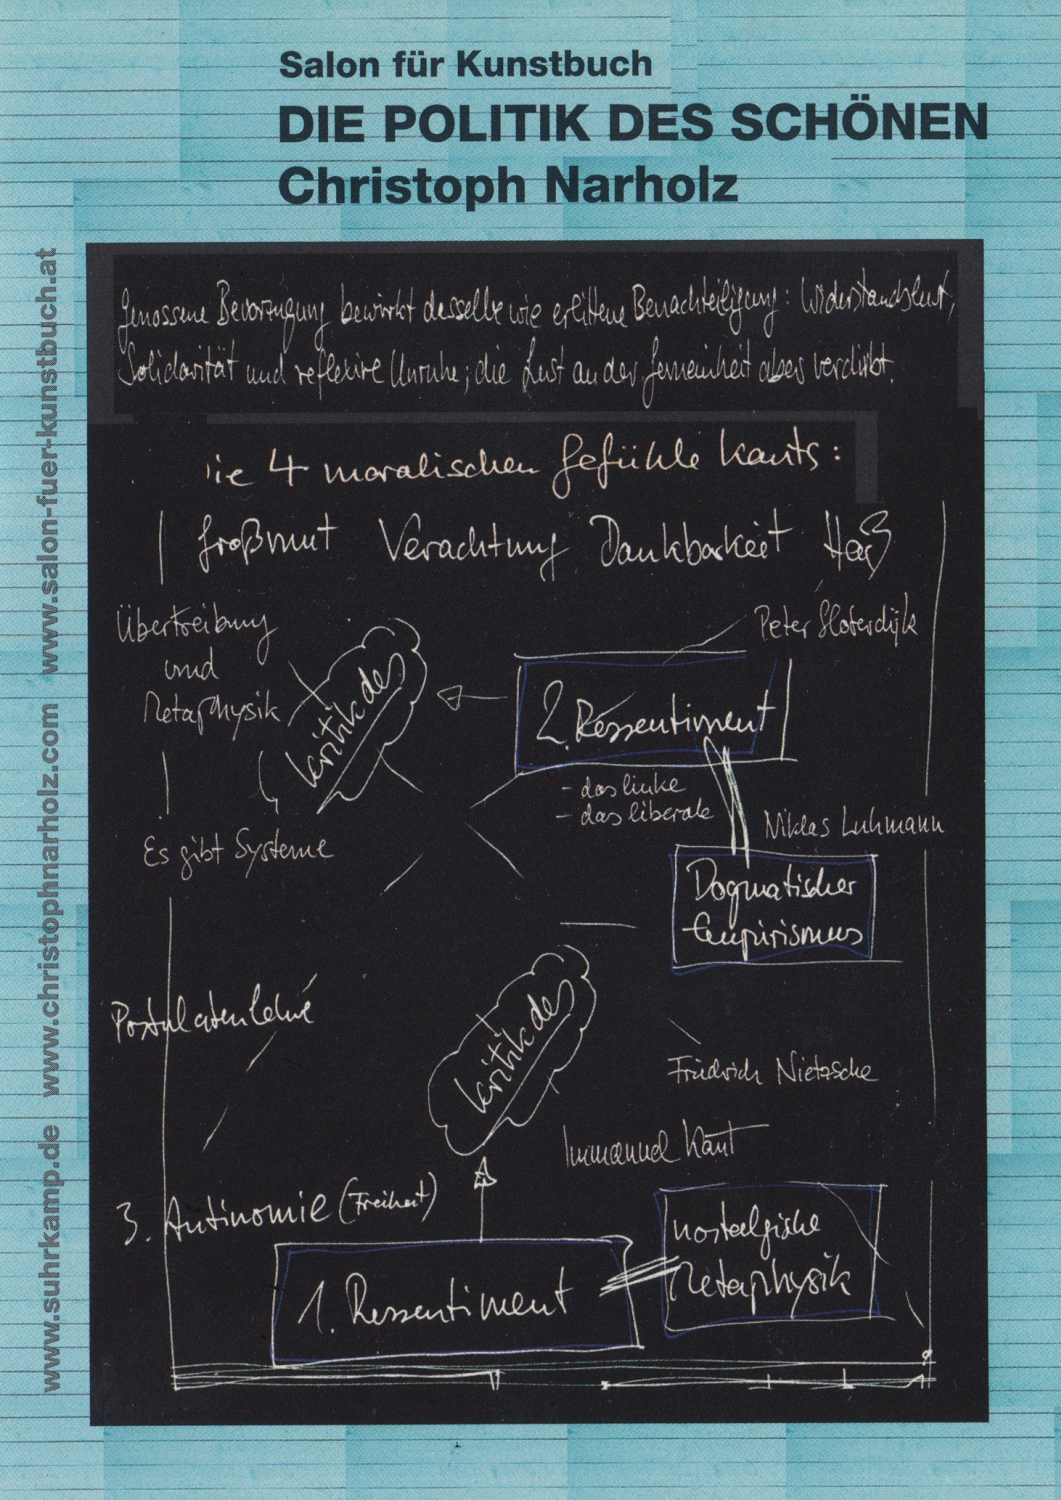 Salon für Kunstbuch
DIE POLITIK DES SCHÖNEN
Christoph Narholz
www.suhrkamp.de www.christophnarholz.com www.salon-fuer-kunstbuch.at
Genossene Bevorzugung bewirkt dasselbe wie erlittene Benachteiligung: Widerstandslust,
Solidarität und reflexive Unruhe; die Lust an der Gemeinheit aber verdirbt.
die 4 moralischen Gefühle Kants:
Großmut Verachtung Dankbarkeit Haß
Übertreibung
und
Metaphysik
Kritik des
Peter Sloterdijk
2. Ressentiment
- das linke
- das liberale
Niklas Luhmann
Es gibt Systeme
Dogmatischer
Empirismus
Postulatenlehre
Kritik des
Friedrich Nietzsche
Immanuel Kant
3. Antinomie (Freiheit)
nostalgische
Metaphysik
1. Ressentiment